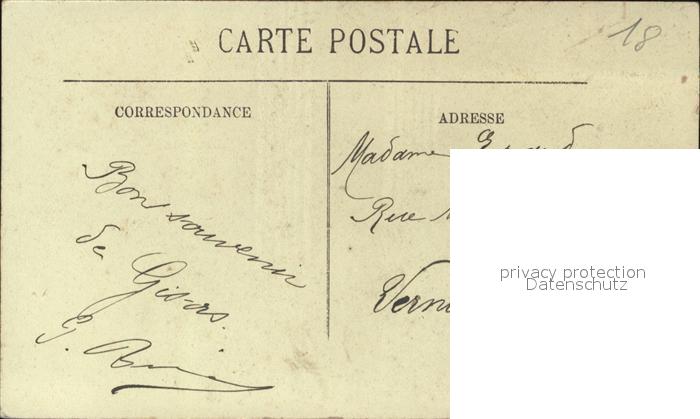 18
CARTE POSTALE
CORRESPONDANCE
ADRESSE
Bon souvenir
de Gisors.
Madame
Rue
privacy protection
Datenschutz